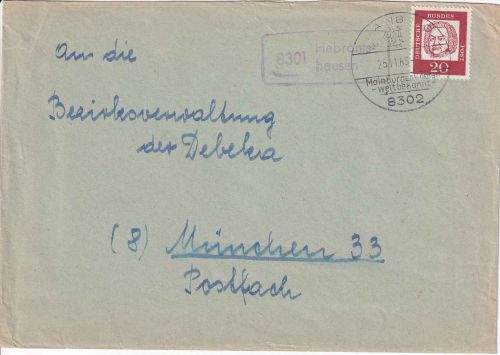 8301 Hebronts-
hausen
25.11.63
Mainburger Hopfen
-weltbekannt-
8302
DEUTSCHE BUNDESPOST
20
An die
Bezirksverwaltung
der Debeka
(8) München 33
Postfach